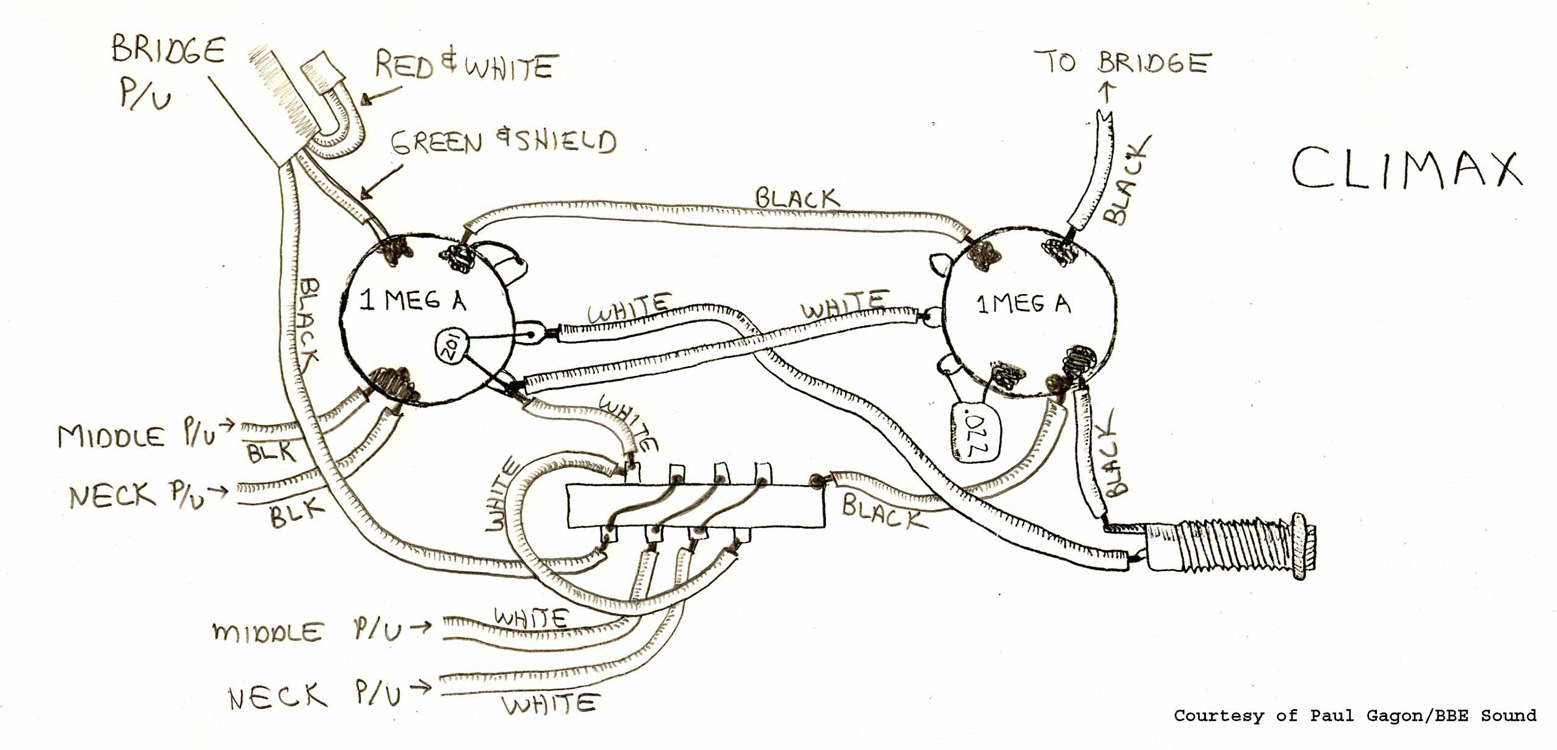 BRIDGE
P/U
RED & WHITE
GREEN & SHIELD
TO BRIDGE
BLACK
CLIMAX
BLACK
BLACK
1 MEG A
201
WHITE
WHITE
1 MEG A
.022
WHITE
MIDDLE P/U→
BLK
NECK P/U→
BLK
WHITE
BLACK
BLACK
MIDDLE P/U →
WHITE
NECK P/U →
WHITE
Courtesy of Paul Gagon/BBE Sound